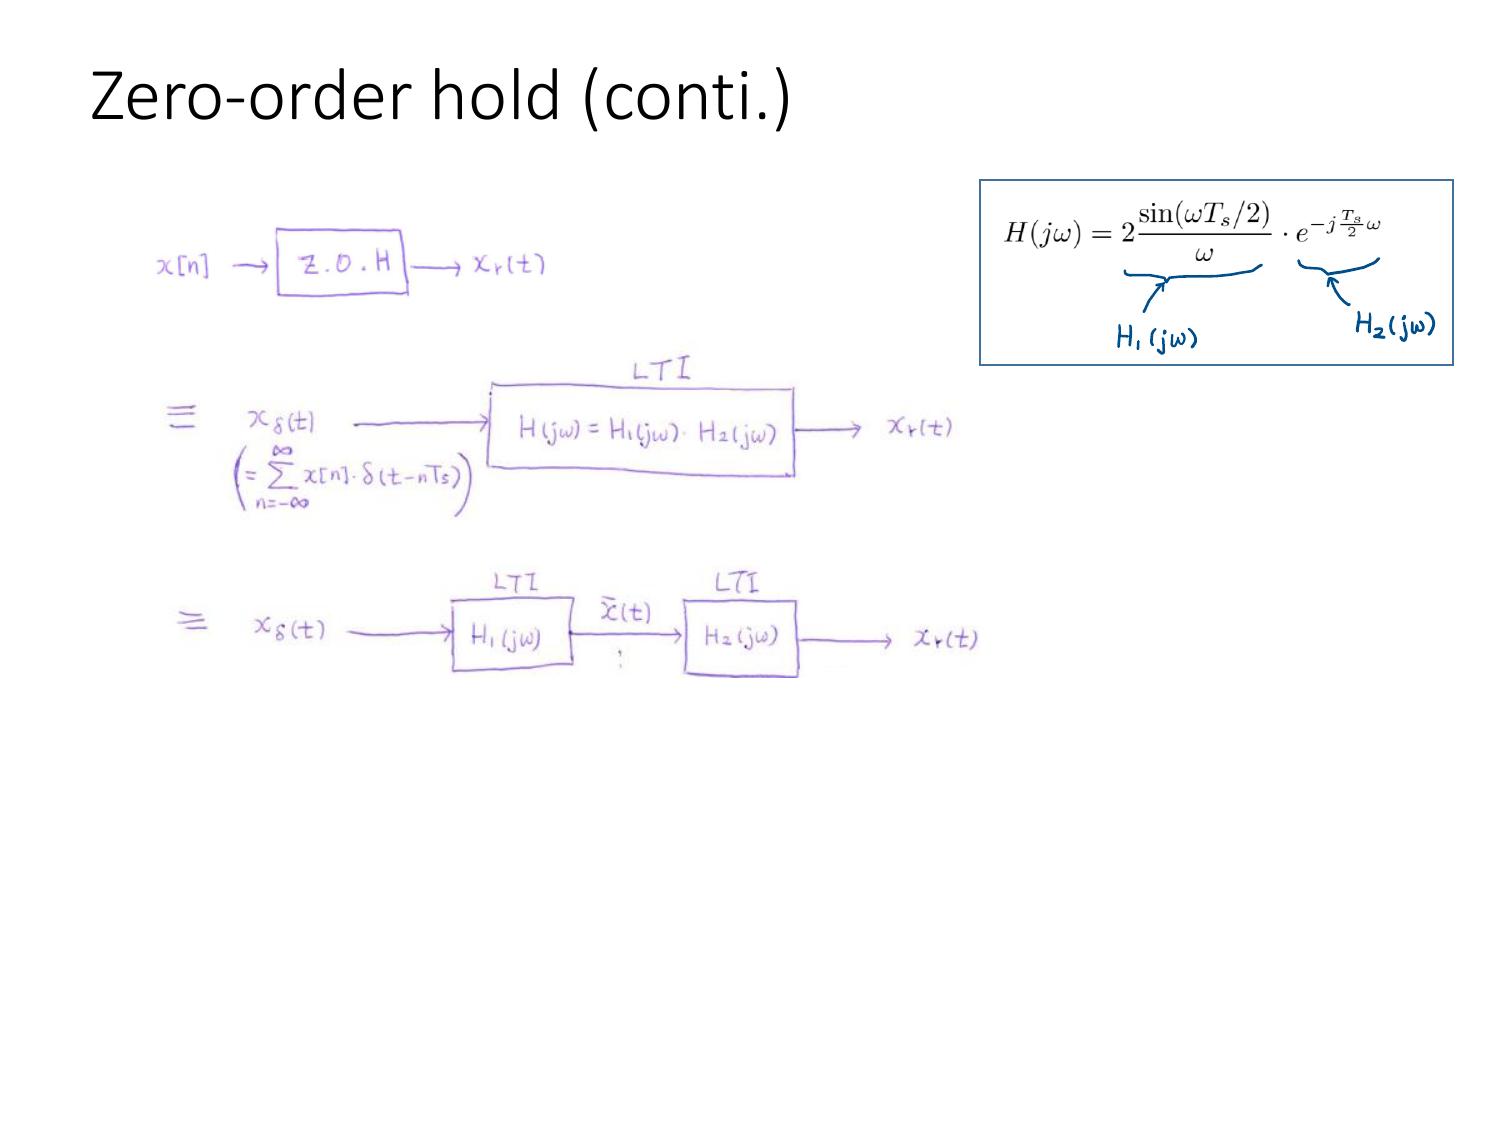 Zero-order hold (conti.)
H(jω) = 2 sin(ωTₛ/2)/ω · e^{-j (Tₛ/2) ω}
H₁(jω)
H₂(jω)
x[n] → Z.O.H → xᵣ(t)
LTI
≡ x_δ(t) → H(jω) = H₁(jω) · H₂(jω) → xᵣ(t)
(= ∑_{n=-∞}^{∞} x[n]·δ(t-nTs))
LTI LTI
≡ x_δ(t) → H₁(jω) x̄(t) → H₂(jω) → xᵣ(t)